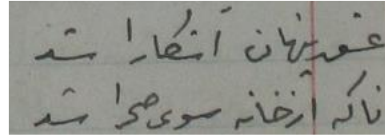 عشق پنهان آشکارا شد
ناگه از خانه سوی صحرا شد